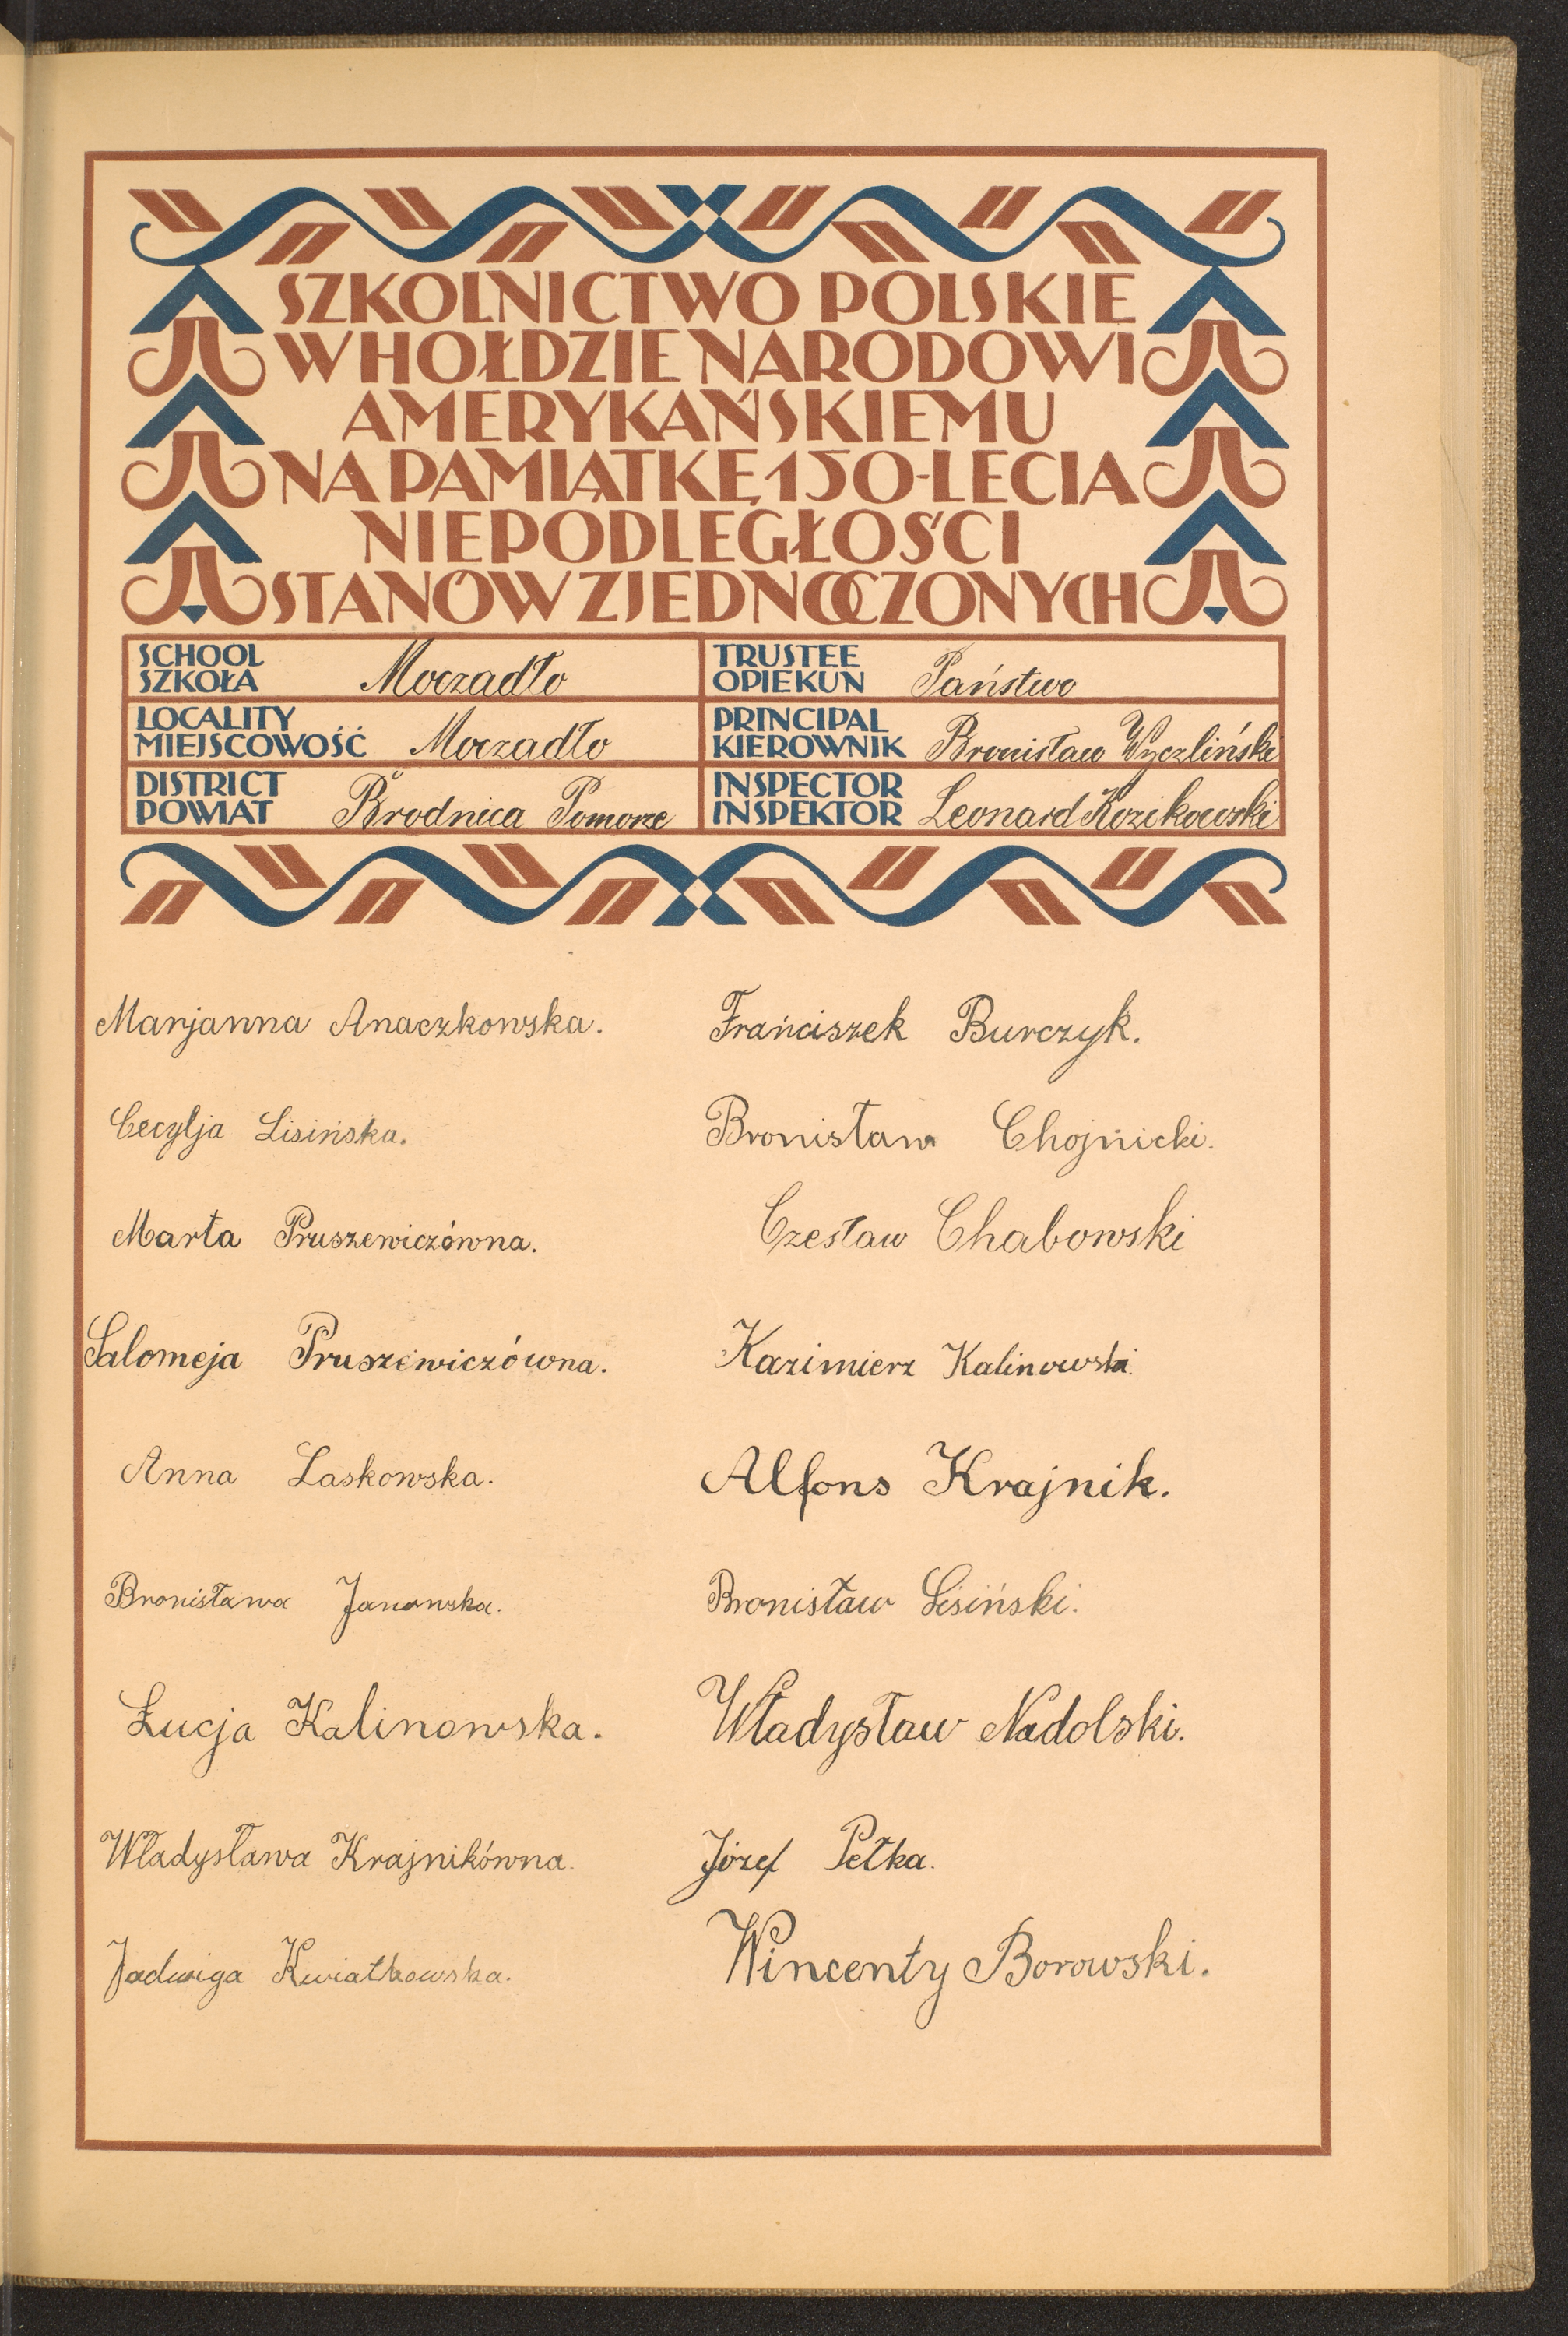 SZKOLNICTWO POLSKIE
W HOŁDZIE NARODOWI
AMERYKAŃSKIEMU
NA PAMIĄTKĘ 150-LECIA
NIEPODLEGŁOŚCI
STANÓW ZJEDNOCZONYCH
SCHOOL
SZKOŁA Moczadło
TRUSTEE
OPIEKUN Państwo
LOCALITY
MIEJSCOWOŚĆ Moczadło
PRINCIPAL
KIEROWNIK Bronisław Wyczliński
DISTRICT
POWIAT Brodnica Pomorze
INSPECTOR
INSPEKTOR Leonard Kozikowski
Marjanna Anaczkowska.
Franciszek Burczyk.
Cecylja Lisińska.
Bronisław Chojnicki.
Marta Pruszewiczówna.
Czesław Chabowski
Salomeja Pruszewiczówna.
Kazimierz Kalinowski.
Anna Laskowska.
Alfons Krajnik.
Bronisława Janowska.
Bronisław Lisiński.
Łucja Kalinowska.
Władysław Nadolski.
Władysława Krajnikówna.
Józef Pełka.
Jadwiga Kwiatkowska.
Wincenty Borowski.